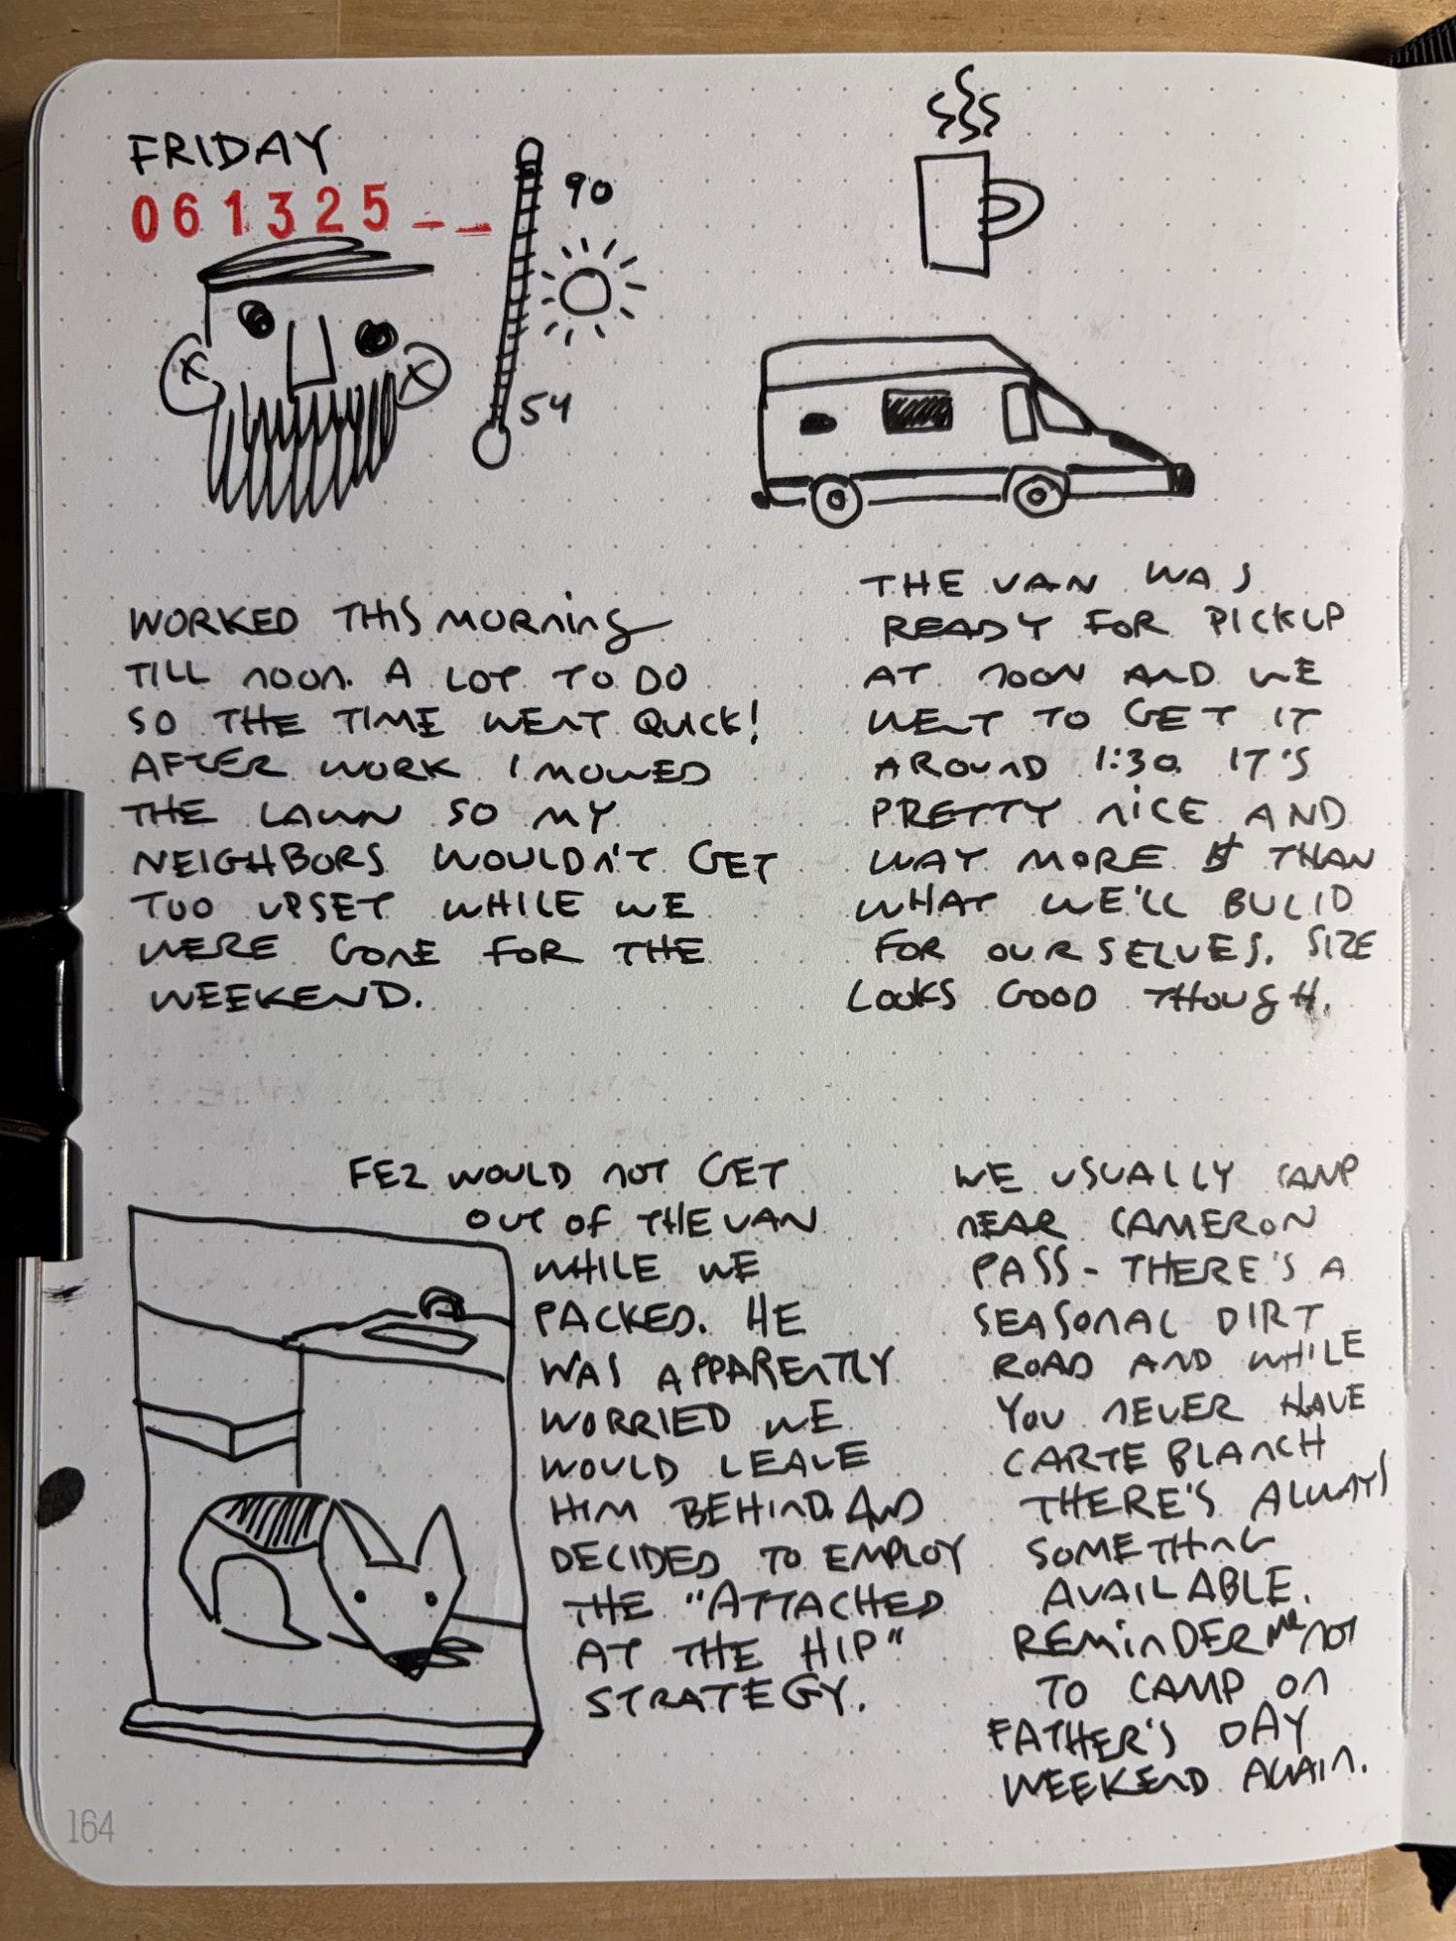 FRIDAY
061325--
90
54
WORKED THIS MORNING
TILL NOON. A LOT TO DO
SO THE TIME WENT QUICK!
AFTER WORK I MOWED
THE LAWN SO MY
NEIGHBORS WOULDN'T GET
TOO UPSET WHILE WE
WERE GONE FOR THE
WEEKEND.
THE VAN WAS
READY FOR PICKUP
AT NOON AND WE
WENT TO GET IT
AROUND 1:30. IT'S
PRETTY NICE AND
WAY MORE $ THAN
WHAT WE'LL BULID
FOR OURSELVES. SIZE
LOOKS GOOD THOUGH.
FEZ WOULD NOT GET
OUT OF THE VAN
WHILE WE
PACKED. HE
WAS APPARENTLY
WORRIED WE
WOULD LEAVE
HIM BEHIND. AND
DECIDED TO EMPLOY
THE "ATTACHED
AT THE HIP"
STRATEGY.
WE USUALLY CAMP
NEAR CAMERON
PASS - THERE'S A
SEASONAL DIRT
ROAD AND WHILE
YOU NEVER HAVE
CARTE BLANCH
THERE'S ALWAYS
SOMETHING
AVAILABLE.
REMINDER ME NOT
TO CAMP ON
FATHER'S DAY
WEEKEND AGAIN.
164